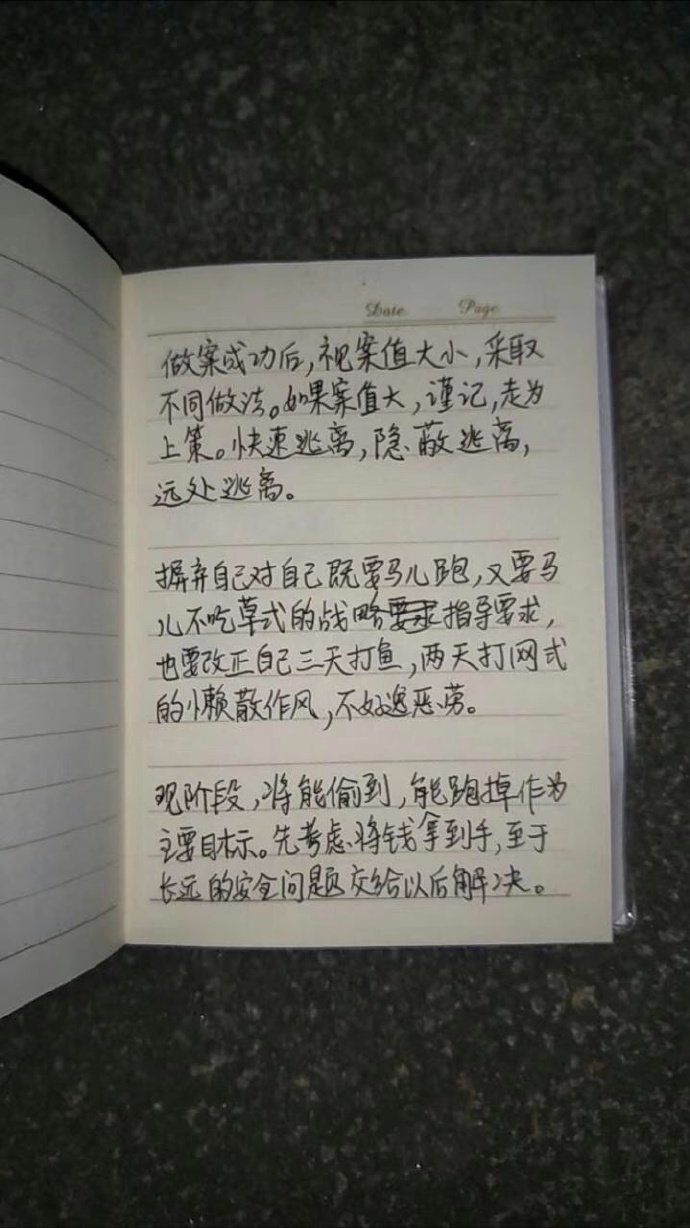 Date Page
做案成功后,视案值大小,采取
不同做法。如果案值大,谨记,走为
上策。快速逃离,隐蔽逃离,
远处逃离。
摒弃自己对自己既要马儿跑,又要马
儿不吃草式的战略要求指导要求,
也要改正自己三天打鱼,两天打网式
的懒散作风,不好逸恶劳。
现阶段,将能偷到,能跑掉作为
主要目标。先考虑将钱拿到手,至于
长远的安全问题交给以后解决。